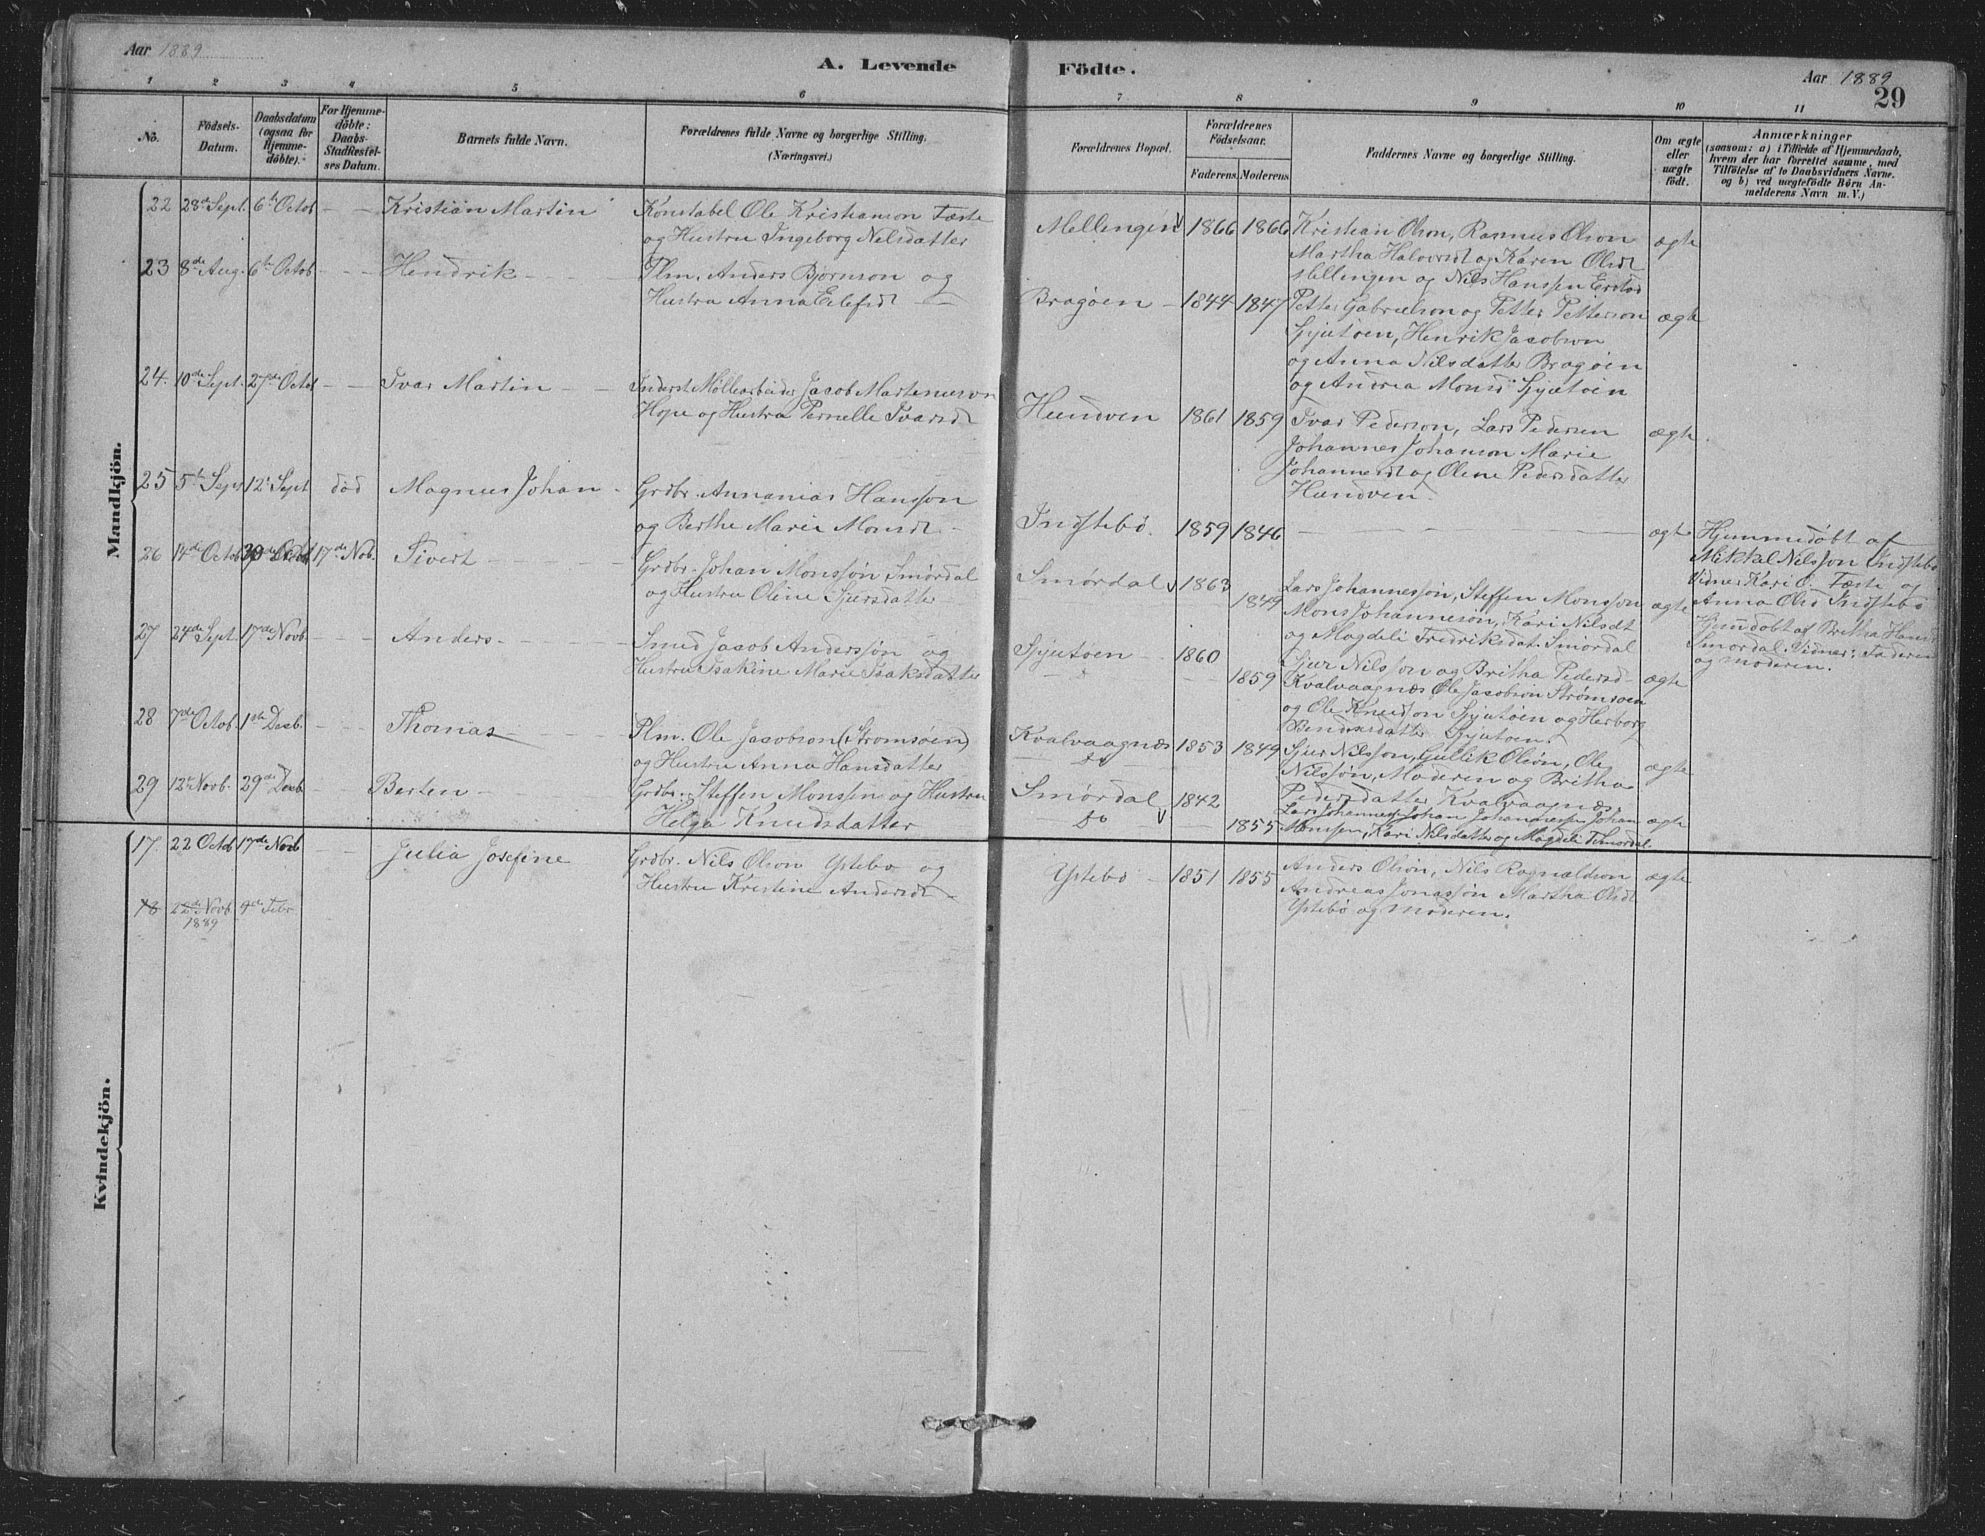 Aar 1889
A. Levende Födte.
Aar 1889
29
1 2 3 4 5 6 7 8 9 10 11
No.
Födsels-Datum.
Daabsdatum (ogsaa for Hjemme-döbte).
For Hjemme-döbte: Daabs-Stadfestel-ses Datum.
Barnets fulde Navn.
Forældrenes fulde Navne og borgerlige Stilling.
(Næringsvei.)
Forældrenes Bopæl.
Forældrenes Födselsaar.
Faderens. Moderens.
Faddernes Navne og borgerlige Stilling.
Om ægte eller uægte födt.
Anmærkninger
(saasom: a) i Tilfælde af Hjemmedaab,
hvem der har forrettet samme, med
Tilföielse af to Daabsvidners Navne.
og b) ved uægtefödte Börn An-
melderens Navn m. V.)
Mandkjön.
22 28de Sept. 6th Octob – – Kristian Martin
Konstabel Ole Kristianson Tæste
og Hustru Ingeborg Nelsdatter
Mellingen 1866 1866
Kristian Olson, Rasmus Olson
Martha Halovrsdt og Karen Olsdt
Mellingen og Nils Hanssen
ægte
23 8de Aug. 6th Octob – – Hendrik
Plm. Anders Bjørnson og
Hustru Anna Eilefsdt
Bragøen 1844 1847
Petter Gabrielson og Petter Petterson
Sjutøen, Henrik Jacobson
og Anna Nilsdatter Bragøen
og Andrea Monsd Sjutøen
ægte
24. 10de Sept. 27de Octob – – Ivar Martin
Inderst Møllearbeider Jacob Martenuson
Hope og Hustru Pernelle Ivarsdt
Hundven 1861 1859
Ivar Pederson, Lars Pedersen
Johannes Johanson Marie
Johannesdt og Olene Pedersdatter
Hundven.
ægte
25 5th Sept 12te Sept død Magnus Johan
Grdbr. Annanias Hansson
og Berthe Marie Monsdt
Indstebø 1859 1846
ægte
Hjemmedøbt af
Mikkal Nilsson Indstebø
Vidner Kari O. Tæste og
Anna Olsd Indstebø
26 14de Octob 20de Octob 17de Nob. Sivert
Grdbr. Johan Monssøn Smørdal
og Hustru Oline Sjursdatter
Smørdal 1863 1849
Lars Johannessøn, Steffen Monsson
Mons Johanneson, Kari Nilsdt
og Magdeli Fredriksdat. Smørdal
ægte
Hjemdøbt af Britha Hansd
Smørdal. Vidner: Faderen
og moderen.
27 24de Sept. 17de Novb Anders
Smed Jacob Anderssøn og
Hustru Isakine Marie Isaksdatter
Sjutøen 1860 1859
Sjur Nilssøn og Britha Pedersd
Kvalvaagnæs Ole Jacobson Strømsøen
og Ole Knudson Sjutøen og Herborg
Bendixsdatter Sjutøen.
ægte
28 7de Octob. 1ste Decb. Thomas
Plm. Ole Jacobson (Strømsøen)
og Hustru Anna Hansdatter
Kvalvaagnæs 1853 1849
Do
Sjur Nilssøn, Gullik Olson, Ole
Nilssøn, Moderen og Britha
Pedersdatter Kvalvaagnæs
ægte
29 12te Novb. 29de Decb Berten
Grdbr. Steffen Monssen og Hustru
Helga Knudsdatter
Smørdal 1842 1855
Do
Lars Johannes, Johan Johannessen Johan
Monssen, Kari Nilsdatter og Magdeli F. Smørdal.
ægte
Kvindekjön.
17 22 Octob 17de Novb Julia Josefine
Grdbr. Nils Olson Ystebø og
Hustru Kristine Andersdt
Ystebø 1851 1855
Anders Olson, Nils Ragnaldson
Andreas Jonassøn Martha Olsdt
Ystebø og moderen.
ægte
18 22de Novb. 9de Febr
1889